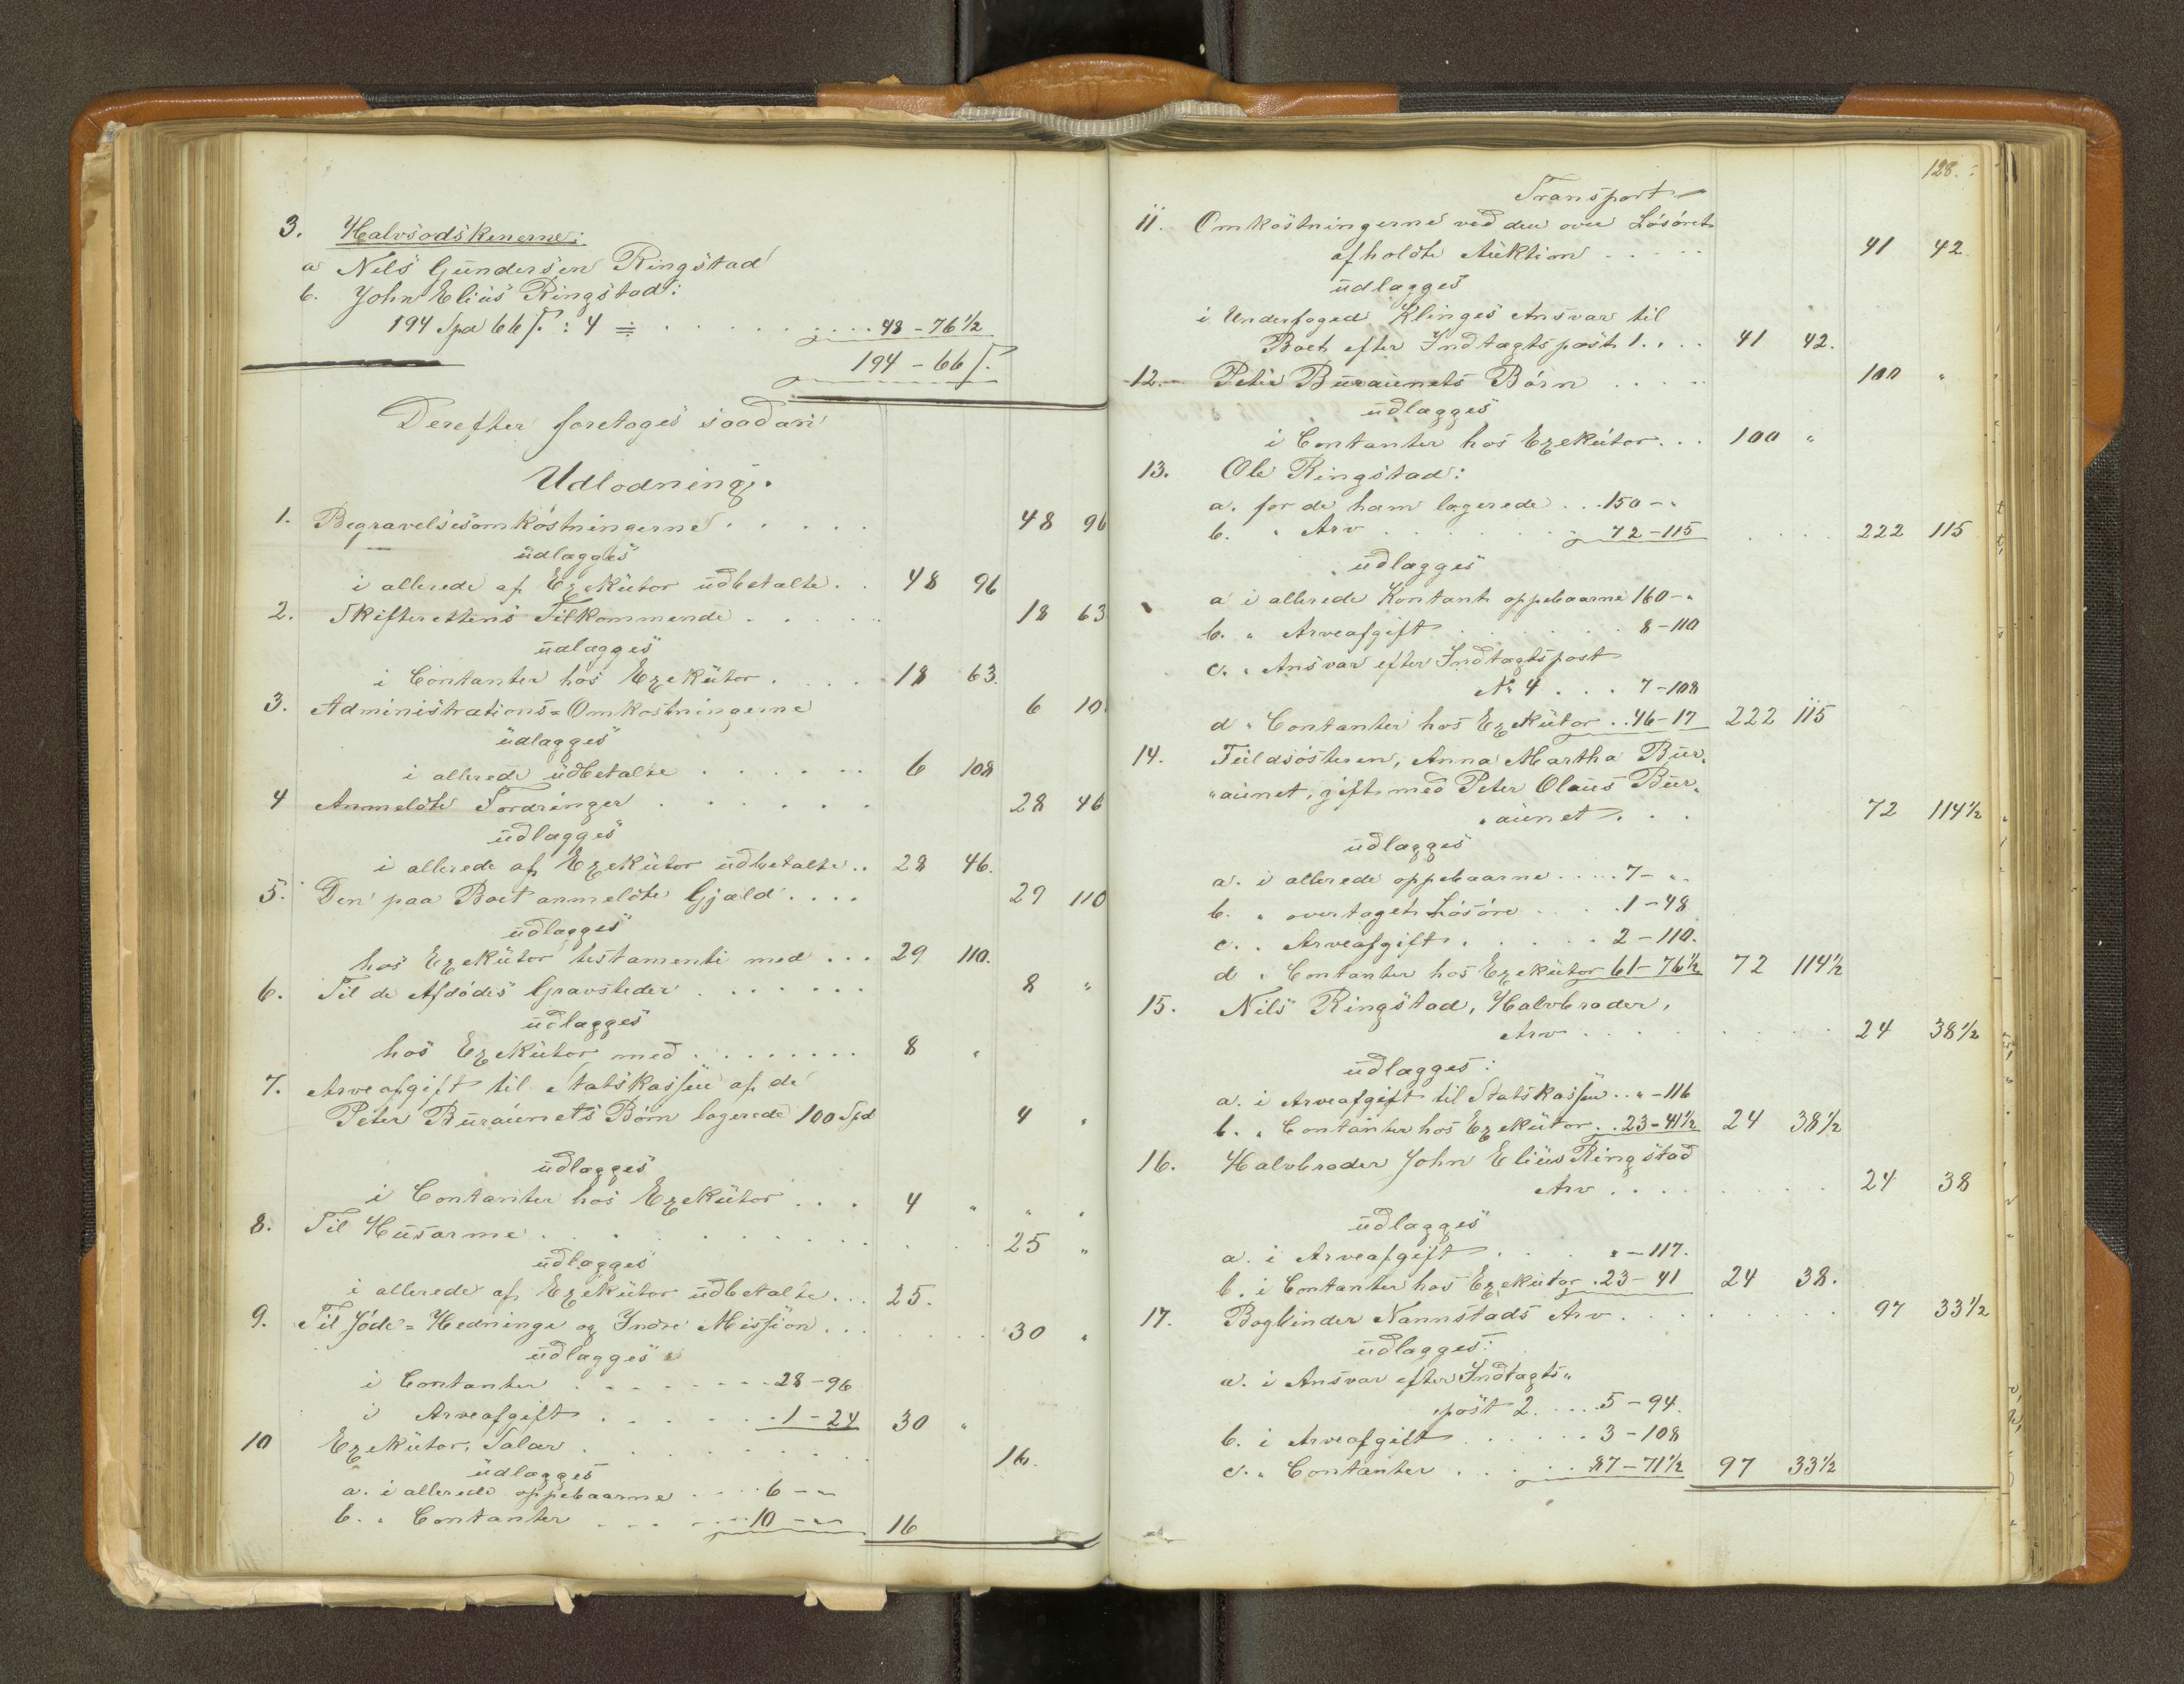 3. Halvsødskenerne:
a Nils Gundersen Ringstad
b. John Elius Ringstad:
194 Spd 66 s. : 4 = 48 - 76 1/2
194 - 66 s.
Derefter foretoges saadan
Udlodning.
1. Begravelsesomkostningerne 48 96
udlægges
i allerede af Exekutor udbetalte 48 96
2. Skifterettens Tilkommende 18 63
udlægges
i Contanter hos Exekutor 18 63.
3. Administrations=Omkostningerne 6 10
udlægges
i allerede udbetalte 6 108
4 Anmeldte Fordringer 28 46
udlægges
i allerede af Exekutor udbetalte 28 46.
5. Den paa Boet anmeldte Gjæld 29 110
udlægges
hos Exekutor testamenti med 29 110.
6. Til de Afdødes Gravsteder 8 "
udlægges
hos Exekutor med 8 "
7. Arveafgift til Statskassen af de
Peter Buraunets Børn legerede 100 Spd 4 "
udlægges
i Contanter hos Exekutor 4 " " "
8. Til Husarme 25 "
udlægges
i allerede af Exekutor udbetalte 25.
9. Til Jøde= Hedninge og Indre Mission 30 "
udlægges
i Contanter 28 - 96
i Arveafgift 1 - 24 30 "
10 Exekutor, Salær 16.
udlægges
a. i allerede oppebaarne 6 - "
b. " Contanter 10 - " 16
128.
Transport
11. Omkostningerne ved den over Løsøret
afholdte Auktion 41 42
udlægges
i Underfoged Klinges Ansvar til
Boet efter Indtægtspost 1. 41 42.
12. Peter Buraunets Børn 100 "
udlægges
i Contanter hos Exekutor 100 "
13. Ole Ringstad:
a. for de ham legerede 150 - "
b. " Arv 72 - 115 222 115
udlægges
a i allerede Kontant oppebaarne 160 - "
b. " Arveafgift 8 - 110
c. " Ansvar efter Indtægtspost
No 4 7 - 108
d " Contanter hos Exekutor 46 - 17 222 115
14. Fuldsøsteren, Anna Martha Bur"
"aunet, gift med Peter Olaus Bur"
"aunet 72 114 1/2
udlægges
a. i allerede oppebaarne 7 - "
b. " overtaget Løsøre 1 - 48
c. " Arveafgift 2 - 110.
d " Contanter hos Exekutor 61 - 76 1/2 72 114 1/2
15. Nils Ringstad, Halvbroder,
Arv 24 38 1/2
udlægges:
a. i Arveafgift til Statskassen " - 116
b. " Contanter hos Exekutor 23 - 41 1/2 24 38 1/2
16. Halvbroder John Elius Ringstad
Arv 24 38
udlægges
a. i Arveafgift " - 117.
b. i Contanter hos Exekutor 23 - 41 24 38.
17. Bogbinder Nannstads Arv 97 33 1/2
udlægges:
a. i Ansvar efter Indtægts"
post 2 5 - 94.
b. i Arveafgift 3 - 108
c. " Contanter 87 - 71 1/2 97 33 1/2